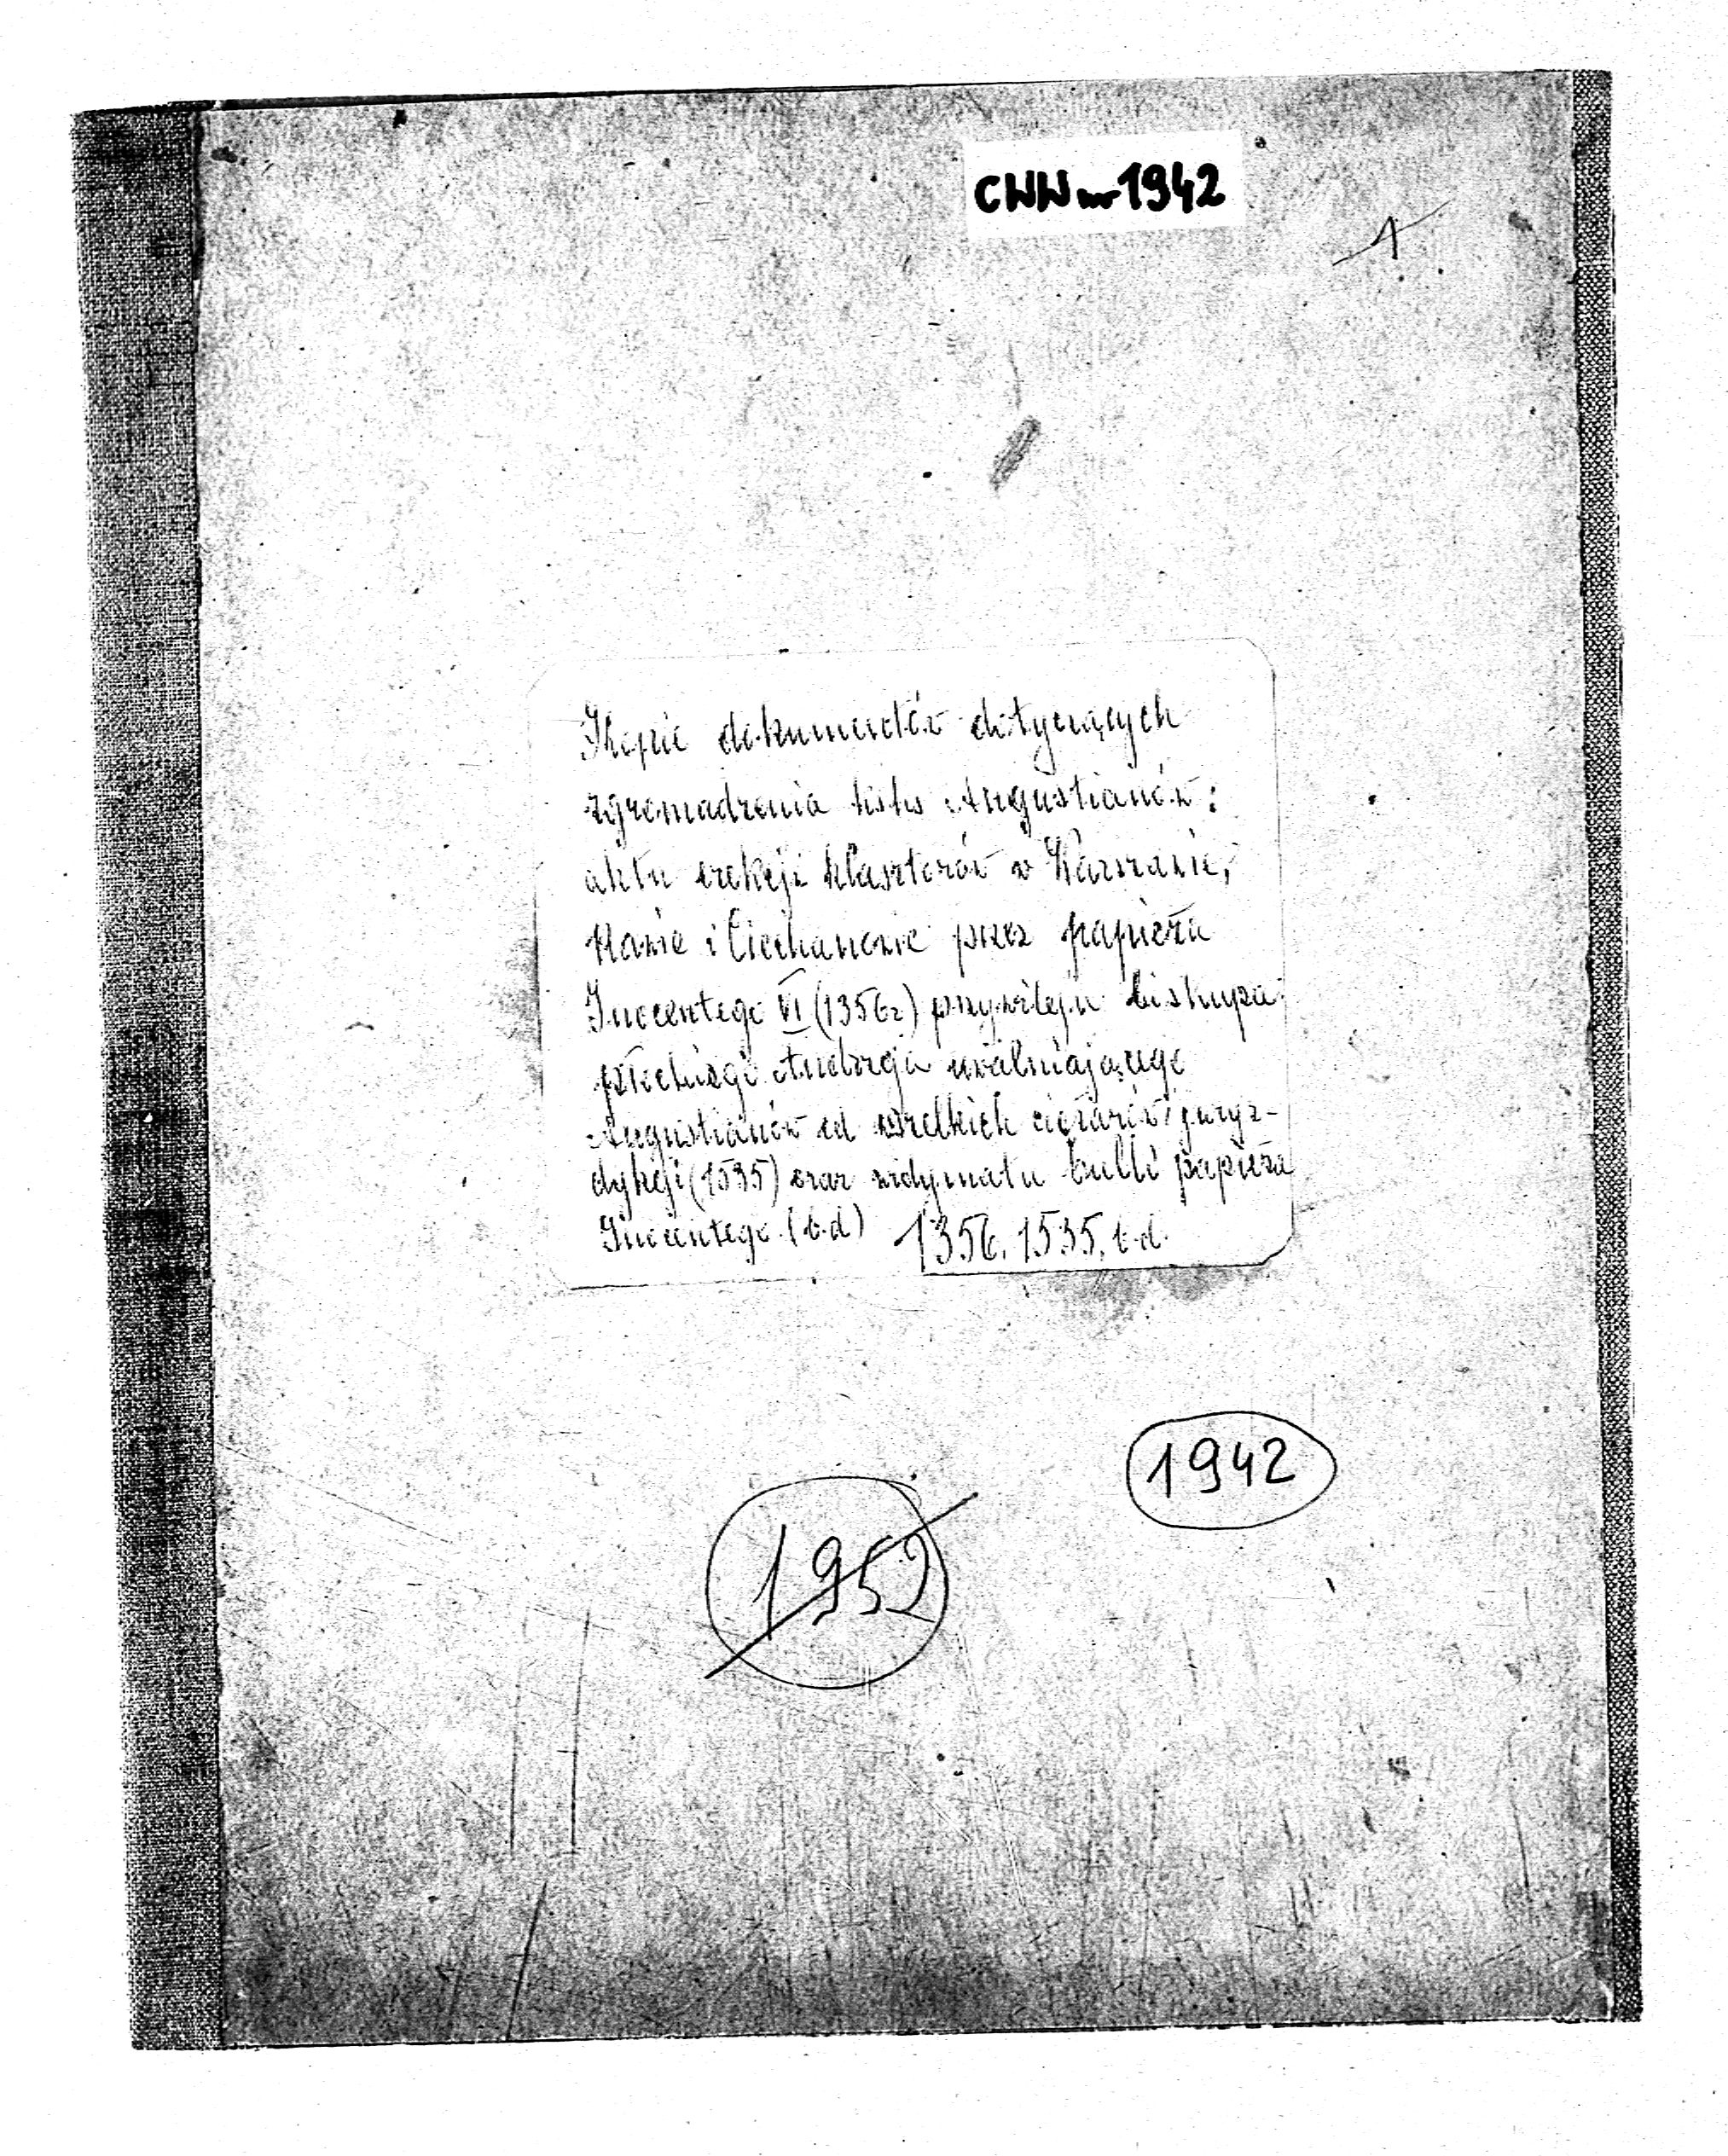 CWW nr 1942
1
Kopie dokumentów dotyczących
zgromadzenia księży Augustianów:
aktu erekcji klasztorów w Warszawie,
Rawie i Ciechanowie przez papieża
Inocentego VI (1356r) przywileju biskupa
płockiego Andrzeja uwalniającego
Augustianów od wszelkich ciężarów i juryz-
dykcji (1535) oraz widymatu bulli papieża
Inocentego (b.d) 1356, 1535, b.d.
1942
1952